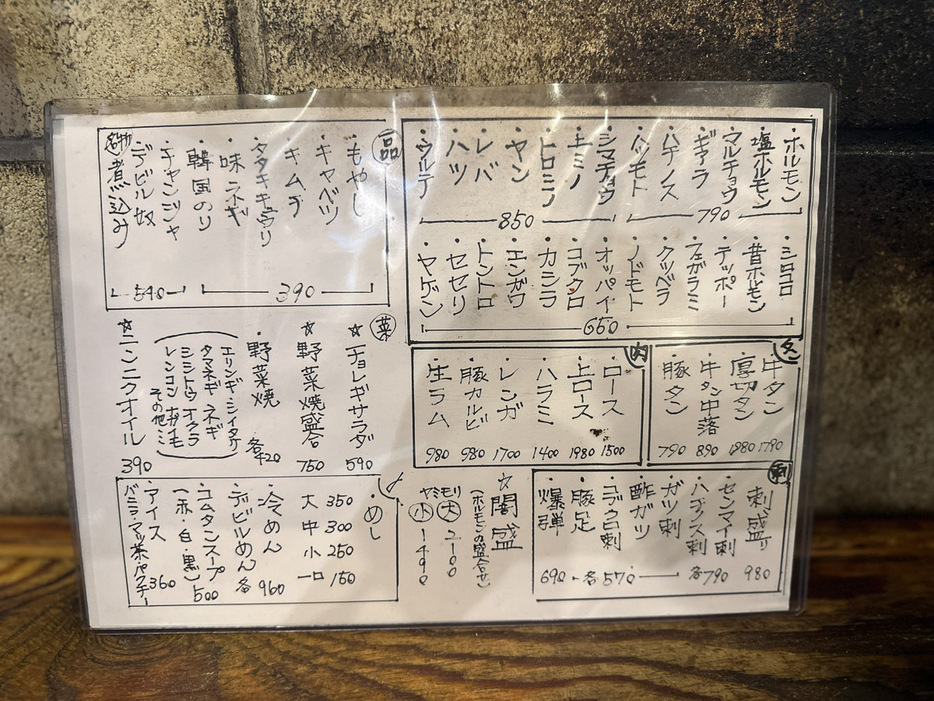 ・ホルモン
・塩ホルモン
・マルチョウ
・ギアラ
・ハチノス
・ハツモト
790
・シマチョウ
・上ミノ
・トロミノ
・ヤン
・レバ
・ハツ
・ウルテ
850
・シロコロ
・昔ホルモン
・テッポー
・フエガラミ
・クツベラ
・ノドモト
・オッパイ
・コブクロ
・カシラ
・エンガワ
・トントロ
・セセリ
・ヤゲン
650
一品
・もやし
・キャベツ
・キムチ
・タタキキュウリ
・味ネギ
・韓国のり
390
・チャンジャ
・デビル奴
煮込み
540
タン
・牛タン 1790
・厚切タン 1980
・牛タン中落 890
・豚タン 790
肉
・ロース 1500
・上ロース 1980
・ハラミ 1400
・レンガ 1700
・豚カルビ 980
・生ラム 980
菜
☆チョレギサラダ 590
☆野菜焼盛合 750
・野菜焼 各420
(エリンギ シイタケ
タマネギ ネギ
シシトウ オクラ
レンコン ナガイモ
その他ミ)
☆ニンニクオイル 390
刺
・刺盛り 980
・センマイ刺
・ハチノス刺
各790
・ガツ刺
・酢ガツ
・コブクロ刺
・豚足
各570
・爆弾 690
☆闇盛
(ホルモンの盛合せ)
ヤミモリ
大 2100
小 1490
〆
・めし
大 350
中 300
小 250
一口 150
・冷めん
・デビルめん
各960
・コムタンスープ
(赤・白・黒) 500
・アイス 360
バニラ・マッ茶・パクチー